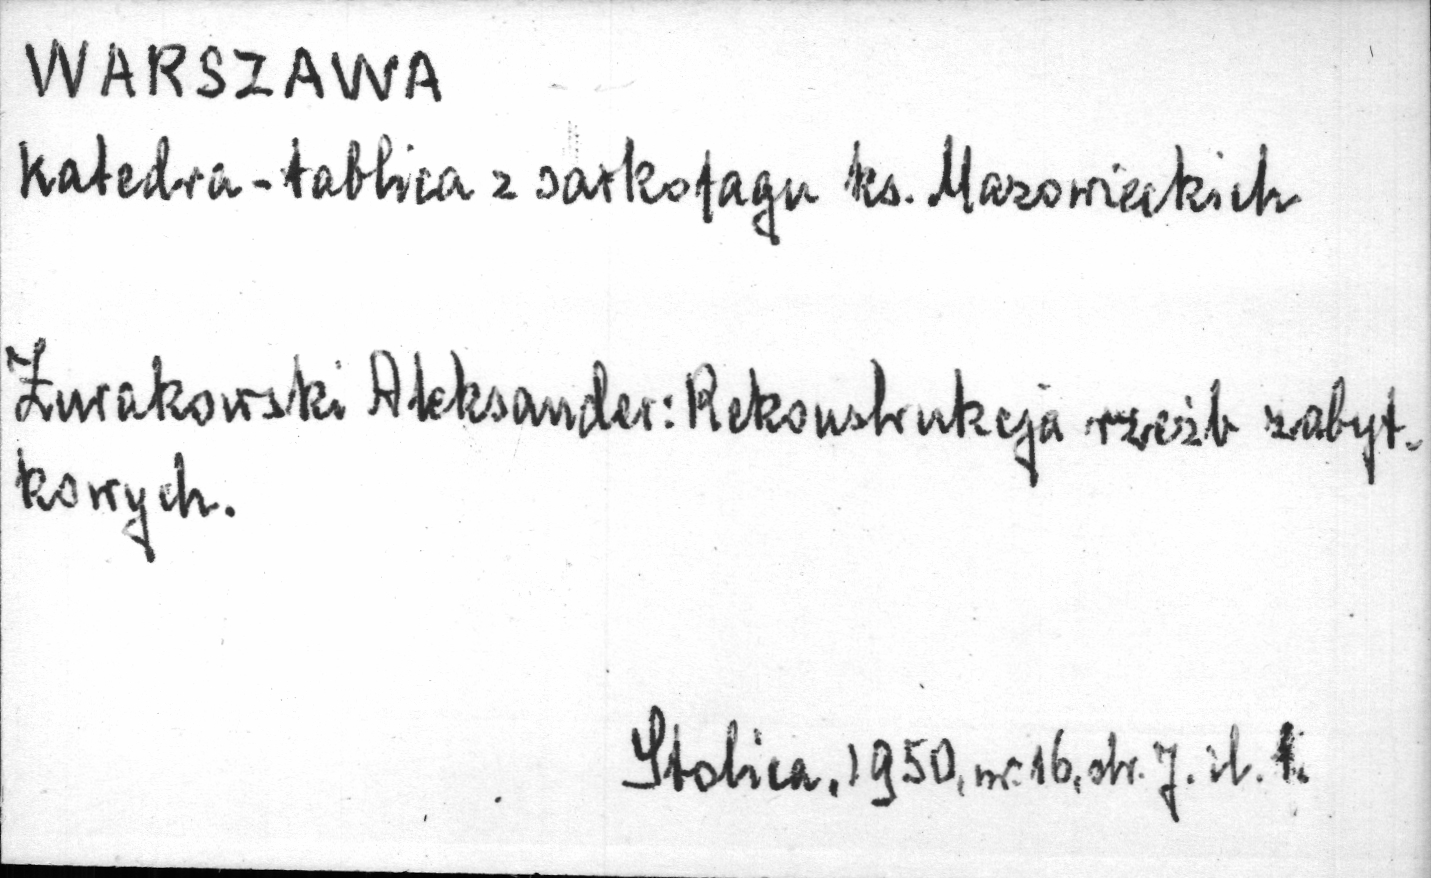 WARSZAWA
Katedra - tablica z sarkofagu ks. Mazowieckich
Żurakowski Aleksander: Rekonstrukcja rzeźb zabyt-
kowych.
Stolica, 1950, nr. 16, str. 7. il. 1.